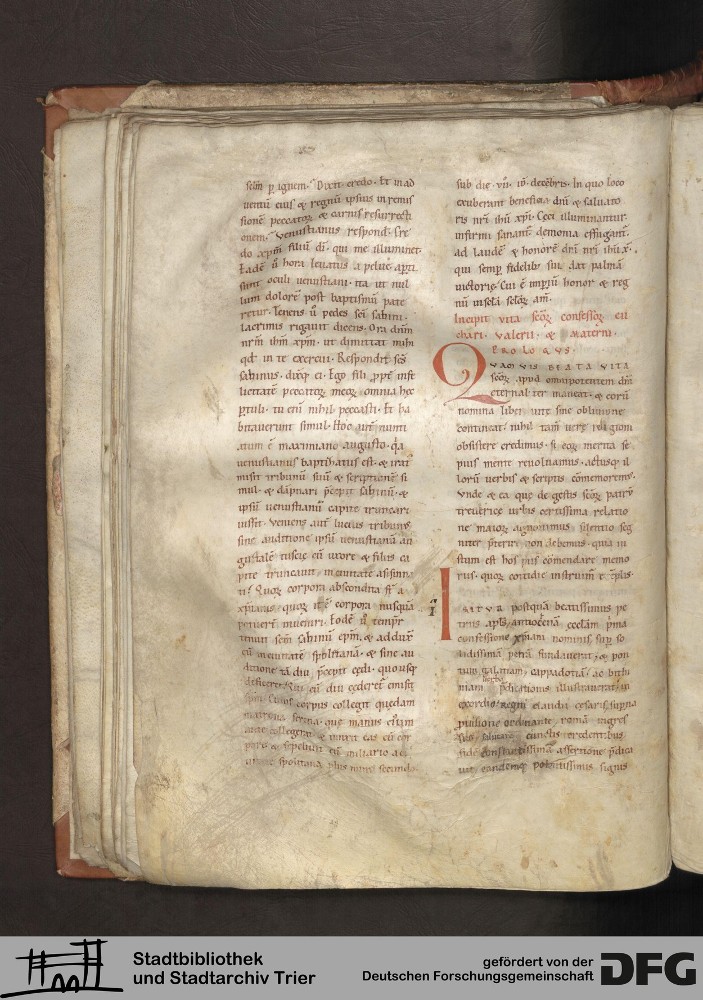 scm p ignem. Dixit credo. Et in ad
ventū eius & regnū ipsius in remis
sionē peccatorꝫ & carnis resurrecti
onem. Venustianus respond. Cre
do xpm filiū dī. qui me illuminet.
Eadē ū hora levatis a pelve. apti
sunt oculi venustiani. ita ut nul
lum dolorē post baptismū pate
retur. Tenens ū pedes sci sabini.
lacrimis rigavit dicens. Ora dnm
nrm ihm xpm. ut dimittat mihi
qd in te exercui. Respondit scs
sabinus. dixq; ei. Ego fili
licitatē peccatorꝫ meorꝫ omnia hec
ptuli. tu enī nihil peccasti. Et ba
bitaverunt simul. Hoc aut nunti
atum ē maximiano augusto. qa
venustianus baptizatus est. & irat
misit tribunū suū & scriptionē si
mul. & dāpnari pcepit sabinū. &
ipsū venustianū capite truncari
iussit. Veniens aut lucius tribunus
sine auditione ipsū venustianū au
gustalē tuscie cū uxore & filiis ca
pite truncavit. in civitate asisina
Quorꝫ corpora abscondita st a
xpianis. quorꝫ itē corpora nusquā
potuert inveniri. Eodē ū tempr
tenuit scm sabinū epm. & adduxt
cū in civitatē spolitanā. & sine au
ditione tā diu pcepit cedi. quousq;
deficeret. Qui cū diu cederet emisit
spm. Cuius corpus collegit quedam
matrona serena. que manus ei iam
ante collegerat & iunxit eas cū cor
pore & sepelivit cū miliario a ci
vitate spolitana plus minus secundo
sub die. vii. id. decēbris. In quo loco
exuberant beneficia dnī & salvato
ris nrī ihū xpī. Ceci illuminantur.
infirmi sanant. demonia effugant.
ad laudē & honorē dnī nrī ihū x.
qui semp fidelib. suis dat palmā
victorie. Cui ē impiū honor & reg
nū in scla sclorꝫ am.
Incipit vita scorꝫ confessorꝫ eu
chari. valerii. & materni.
PROLOGVS.
QVAMVIS BEATA VITA
scorꝫ apud omnipotentem dnm
eternaliter maneat. & eorū
nomina liber vite sine oblivione
contineat. nihil tam vere religioni
obsistere credimus. si eorꝫ merita se
pius mente revolvamus. actusq; il
lorū verbis & scriptis cōmemorems.
Vnde & ea que de gestis scorꝫ patrū
treverice urbis certissima relatio
ne maiorꝫ agnovimus. silentio seg
niter preriri non debemus. quia iu
stum est hos pus cōmendare memo
riis. quorꝫ cotidie instruimr exēplis.
IGITVR postquā beatissimus pe
trus apls antiocenā ecclam pma
confessione xpiani nominis sup so
lidissimā petrā fundaverat. & pon
tum galatiam. cappadotiā. ac bithi
niam verbo pdicationis illustraverat. in
exordio regni claudii cesaris. supna
pvisione ordinante. romā ingres
sus. salutarē cunctis credentibus
fidē constantissima assertione pdica
vit. eandemq; potentissimis signis
Stadtbibliothek
und Stadtarchiv Trier
gefördert von der
Deutschen Forschungsgemeinschaft
DFG